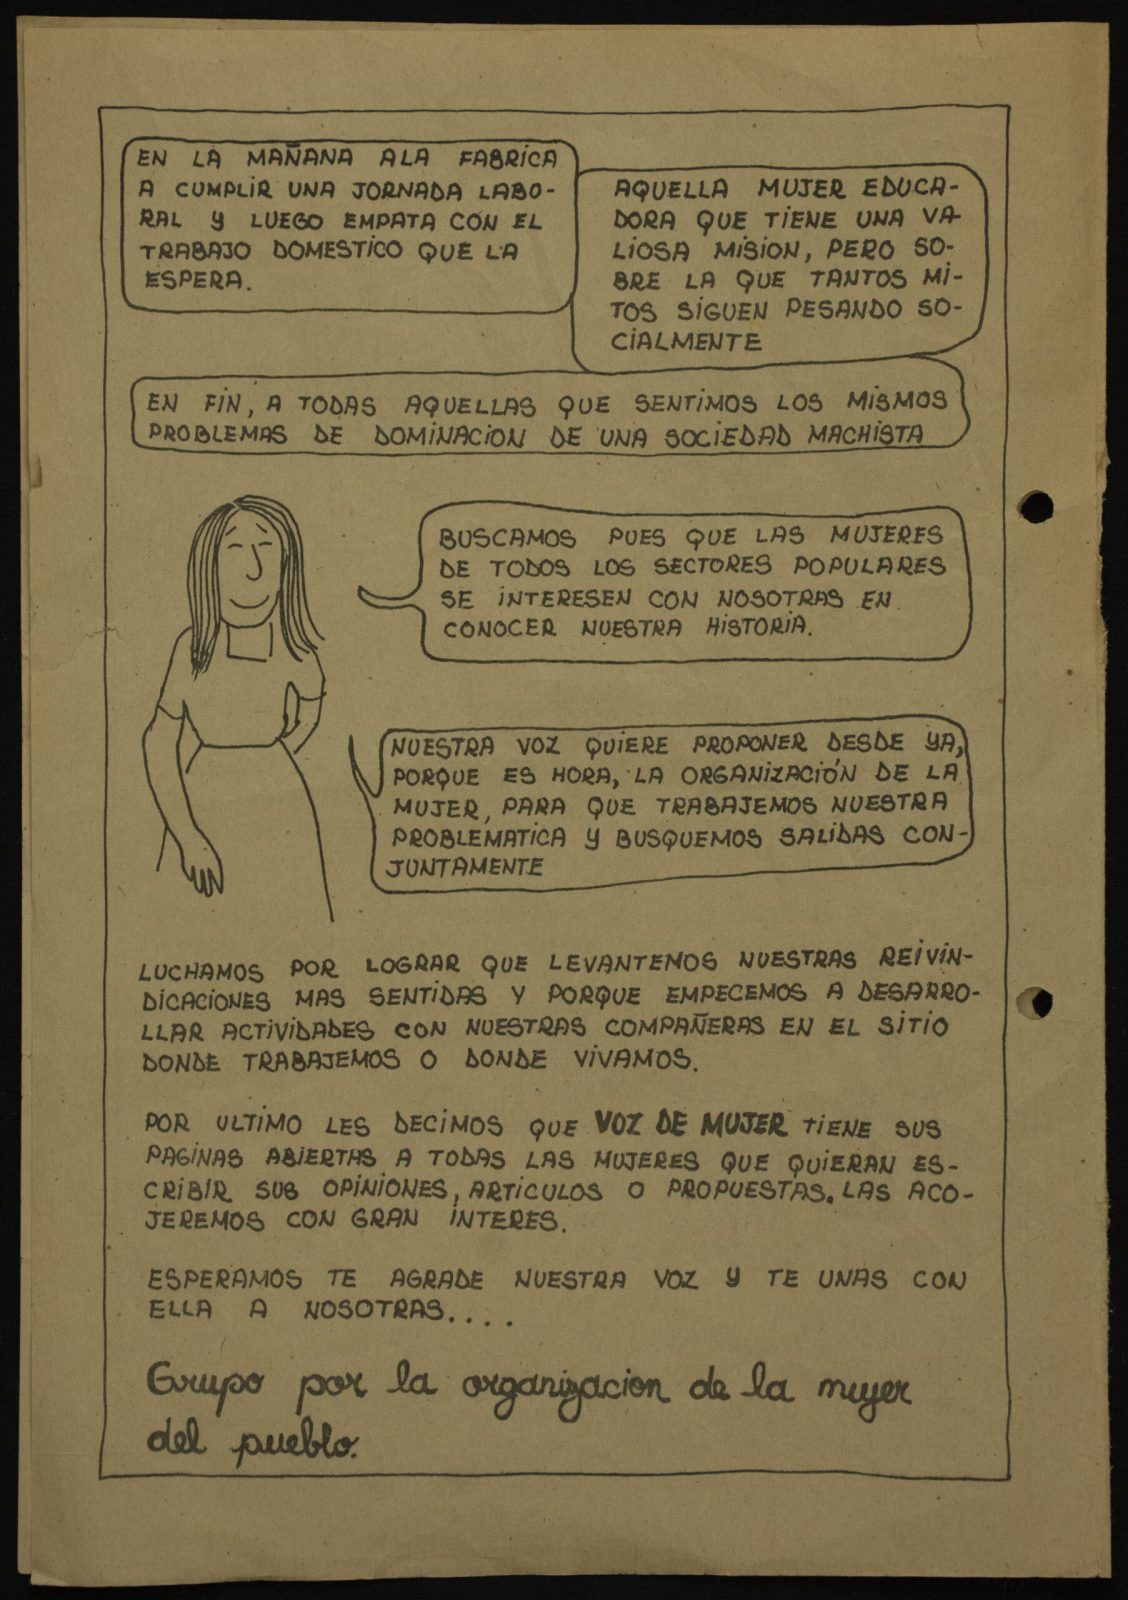 EN LA MAÑANA ALA FABRICA
A CUMPLIR UNA JORNADA LABO-
RAL Y LUEGO EMPATA CON EL
TRABAJO DOMESTICO QUE LA
ESPERA.
AQUELLA MUJER EDUCA-
DORA QUE TIENE UNA VA-
LIOSA MISION, PERO SO-
BRE LA QUE TANTOS MI-
TOS SIGUEN PESANDO SO-
CIALMENTE
EN FIN, A TODAS AQUELLAS QUE SENTIMOS LOS MISMOS
PROBLEMAS DE DOMINACION DE UNA SOCIEDAD MACHISTA
BUSCAMOS PUES QUE LAS MUJERES
DE TODOS LOS SECTORES POPULARES
SE INTERESEN CON NOSOTRAS EN
CONOCER NUESTRA HISTORIA.
NUESTRA VOZ QUIERE PROPONER DESDE YA,
PORQUE ES HORA, LA ORGANIZACIÓN DE LA
MUJER, PARA QUE TRABAJEMOS NUESTRA
PROBLEMATICA Y BUSQUEMOS SALIDAS CON-
JUNTAMENTE
LUCHAMOS POR LOGRAR QUE LEVANTEMOS NUESTRAS REIVIN-
DICACIONES MAS SENTIDAS Y PORQUE EMPECEMOS A DESARRO-
LLAR ACTIVIDADES CON NUESTRAS COMPAÑERAS EN EL SITIO
DONDE TRABAJEMOS O DONDE VIVAMOS.
POR ULTIMO LES DECIMOS QUE VOZ DE MUJER TIENE SUS
PAGINAS ABIERTAS A TODAS LAS MUJERES QUE QUIERAN ES-
CRIBIR SUS OPINIONES, ARTICULOS O PROPUESTAS. LAS ACO-
JEREMOS CON GRAN INTERES.
ESPERAMOS TE AGRADE NUESTRA VOZ Y TE UNAS CON
ELLA A NOSOTRAS....
Grupo por la organizacion de la mujer
del pueblo.